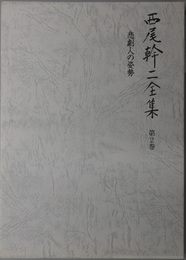 西尾幹二全集
第2巻
悲劇人の姿勢